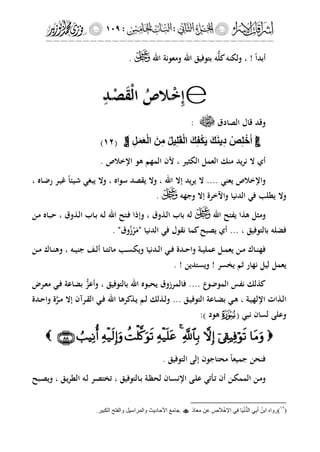 إشراقات الإسراء الثاني : النبات الثاني : ١٠٩
أبداً ! ، ولكنه كلُّه بتوفيق الله ومعونة الله .
إخلاصُ الْقَصْدِ
وقد قال الصادق :
﴿ أَخْلِصْ دِينَكَ يَكْفِكَ الْقَلِيلُ مِنَ الْعَمَلِ ﴾ (١٢)
أي لا نريد منك العمل الكثير ، لأن المهم هو الإخلاص .
والإخلاص يعني .... لا يريد إلا الله ، ولا يقصد سواه ، ولا يبغي شيئاً غير رضاه ،
ولا يطلب في الدنيا والآخرة إلا وجهه .
ومثل هذا يفتح الله له باب الذوق ، وإذا فتح الله له باب الذوق ، حباه من
فضله بالتوفيق ، ... أي يصبح كما نقول في الدنيا "مَرْزُوق" .
فهناك من يعمل عملية واحدة في الدنيا ويكسب مائتا ألف جنيه ، وهناك من
يعمل ليل نهار ثم يخسر ! ويستدين ! .
كذلك نفس الموضوع .... فالمرزوق يحبوه الله بالتوفيق ، وأعزُّ بضاعة في معرض
الذات الإلهية ، هي بضاعة التوفيق ... ولذلك لم يذكرها الله في القرآن إلا مرَّة واحدة
وعلى لسان نبي ( هود ):
﴿ وَمَا تَوْفِيقِي إِلَّا بِاللَّهِ ۚ عَلَيْهِ تَوَكَّلْتُ وَإِلَيْهِ أُنِيبُ ٨٨ ﴾
فنحن جميعاً محتاجون إلى التوفيق .
ومن الممكن أن تأتي على الإنسان لحظة بالتوفيق ، تختصر له الطريق ، ويصبح
(١٢)رواه ابنُ أبي الدُّنْيَا في الإخلاص عن معاذ ، جامع الأحاديث والمراسيل والفتح الكبير.